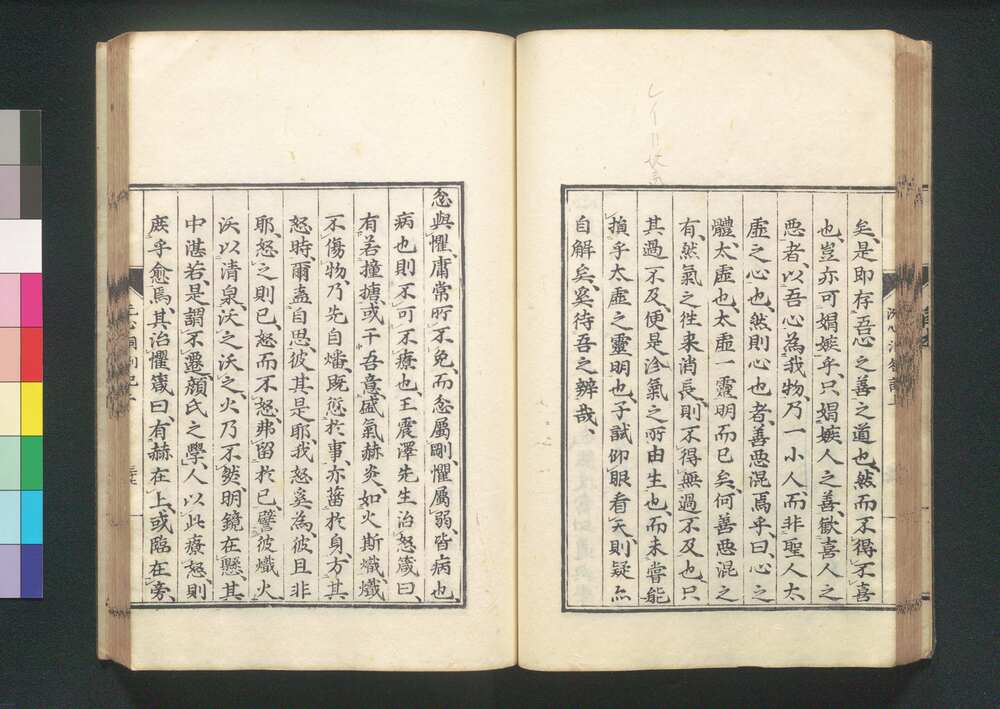 矣、是即存吾心之善之道也、然而不得不喜
也、豈亦可媢嫉乎、只媢嫉人之善、歓喜人之
惡者、以吾心為我物、乃一小人、而非聖人太
虛之心也、然則心也者、善惡混焉乎、曰、心之
體太虛也、太虛一靈明而已矣、何善惡混之
有、然氣之往来消長、則不得無過不及也、只
其過不及、便是沴氣之所由生也、而未嘗能
損乎太虛之靈明也、子試仰眼看天、則疑亦
自解矣、奚待吾之辨哉、
忿與懼、庸常所不免、而忿屬剛、懼屬弱、皆病也、
病也則不可不療也、王震澤先生治怒箴曰、
有若撞搪、或干吾意、盛氣赫炎、如火斯熾、熾
不傷物、乃先自燔、既愆於事、亦菑於身、方其
怒時、爾盍自思、彼其是耶、我怒奚為、彼且非
耶、怒之則已、怒而不怒、弗留於已、譬彼熾火
沃以清泉、沃之沃之、火乃不然、明鏡在懸、其
中湛若、是謂不遷、顏氏之學、人以此療怒、則
庶乎愈焉、其治懼箴曰、有赫在上、或臨在旁、